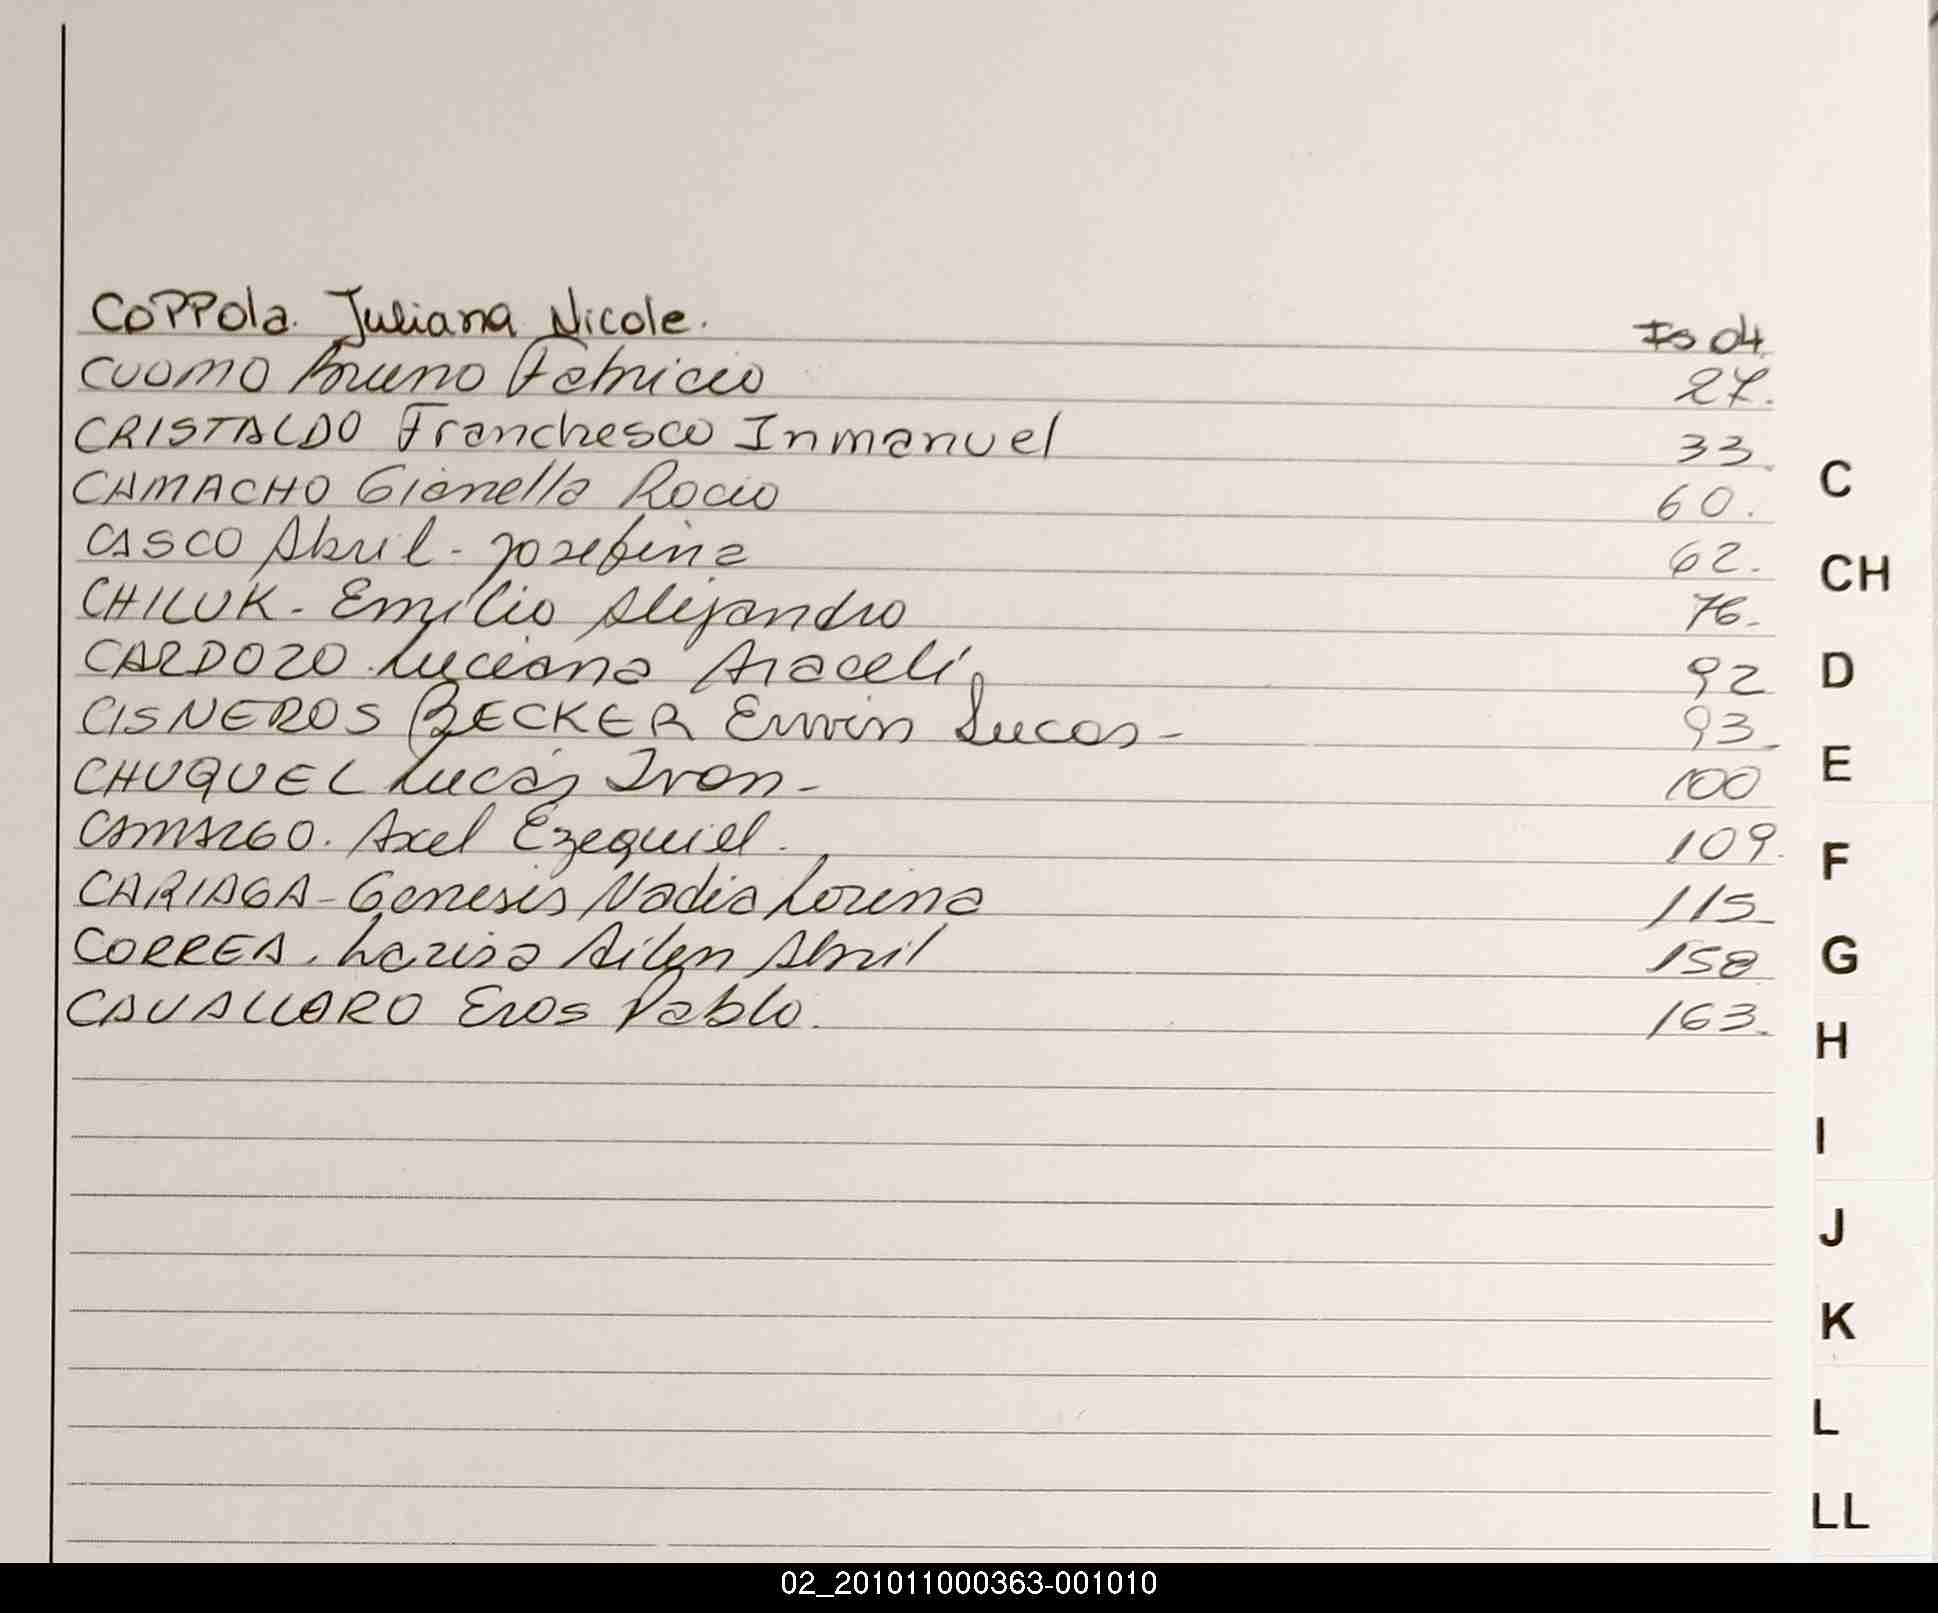 COPPOLA. Juliana Nicole. Fs 04.
CUOMO Bruno Fabricio 27.
CRISTALDO Franchesco Inmanuel 33.
CAMACHO Gianella Rocio 60.
CASCO Abril - Josefina 62.
CHILUK - Emilio Alejandro 76.
CARDOZO. Luciana Araceli 92
CISNEROS BECKER Erwin Lucas - 93.
CHUQUEL Lucas Ivan - 100
CAMARGO. Axel Ezequiel. 109.
CARIAGA - Genesis Nadia Lorena 115
CORREA. Larisa Ailen Abril 158
CAVALLARO Eros Pablo. 163.
C
CH
D
E
F
G
H
I
J
K
L
LL
02_201011000363-001010